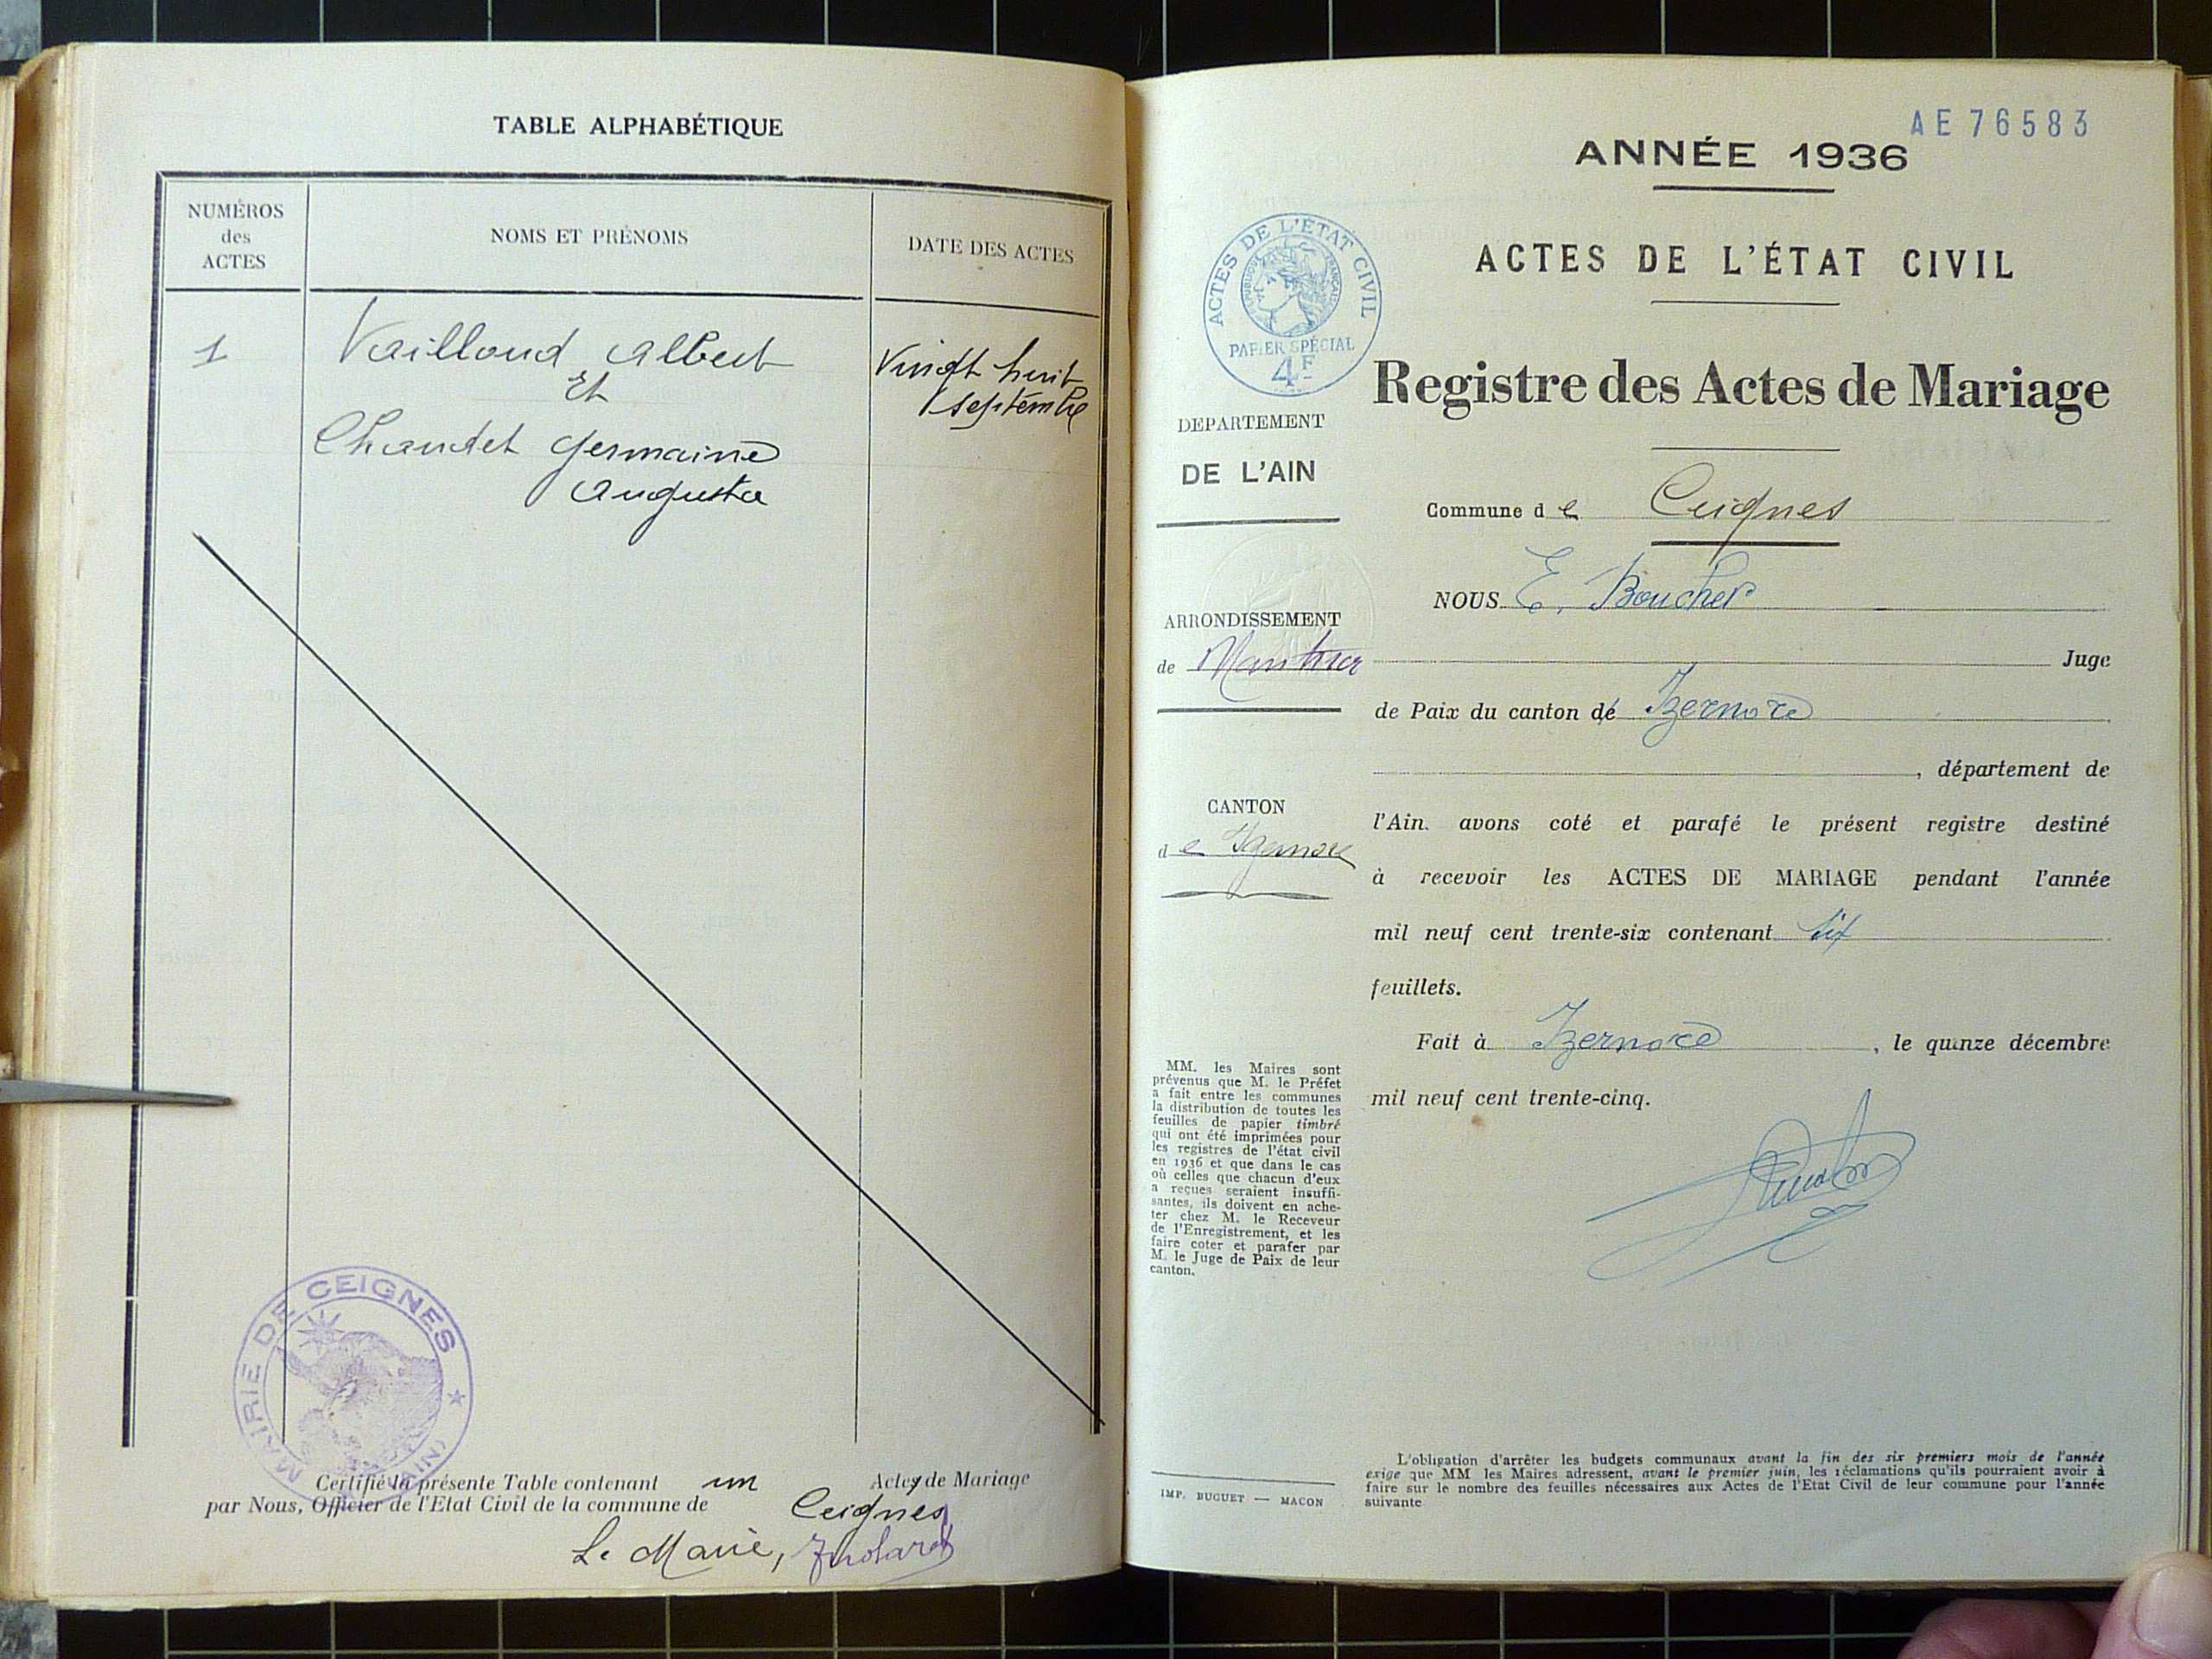 TABLE ALPHABÉTIQUE
NUMÉROS
des
ACTES
NOMS ET PRÉNOMS
DATE DES ACTES
1
Vailloud Albert
Et
Chaudet Germaine
Augusta
Vingt huit
septembre
MAIRIE DE CEIGNES (AIN)
Certifié la présente Table contenant un Actes de Mariage
par Nous, Officier de l'Etat Civil de la commune de
Ceignes
Le Maire,
AE 76583
ANNÉE 1936
ACTES DE L'ÉTAT CIVIL
ACTES DE L'ÉTAT CIVIL
RÉPUBLIQUE FRANÇAISE
PAPIER SPÉCIAL
4F
Registre des Actes de Mariage
DEPARTEMENT
DE L'AIN
Commune de Ceignes
NOUS E. Boucher
ARRONDISSEMENT
de Nantua
Juge
de Paix du canton de Izernore
, département de
CANTON
de Izernore
l'Ain. avons coté et parafé le présent registre destiné
à recevoir les ACTES DE MARIAGE pendant l'année
mil neuf cent trente-six contenant six
feuillets.
Fait à Izernore, le quinze décembre
mil neuf cent trente-cinq.
MM. les Maires sont
prévenus que M. le Préfet
a fait entre les communes
la distribution de toutes les
feuilles de papier timbré
qui ont été imprimées pour
les registres de l'état civil
en 1936 et que dans le cas
où celles que chacun d'eux
a reçues seraient insuffi-
santes, ils doivent en ache-
ter chez M. le Receveur
de l'Enregistrement, et les
faire coter et parafer par
M. le Juge de Paix de leur
canton.
IMP. BUGUET — MACON
L'obligation d'arrêter les budgets communaux avant la fin des six premiers mois de l'année
exige que MM les Maires adressent, avant le premier juin, les réclamations qu'ils pourraient avoir à
faire sur le nombre des feuilles nécessaires aux Actes de l'Etat Civil de leur commune pour l'année
suivante